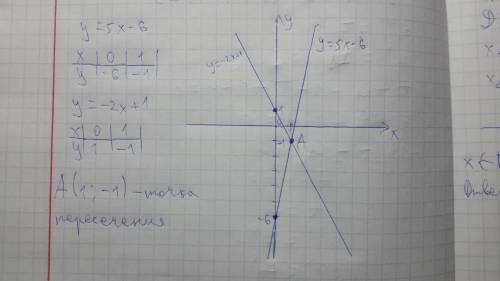 y=5x-6
x 0 1
y -6 -1
y=-2x+1
x 0 1
y 1 -1
A(1; -1) - точка
пересечения
y
y=-2x+1
y=5x-6
1
A
x
-1
-6